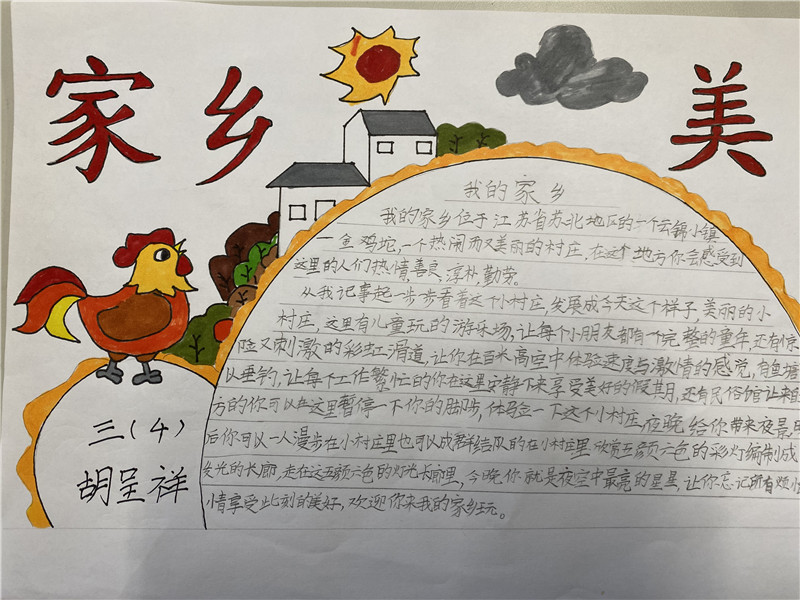 家乡美
我的家乡
我的家乡位于江苏省苏北地区的一个云锦小镇
一鱼鸡坨,一个热闹而又美丽的村庄,在这个地方你会感受到
这里的人们热情,善良,淳朴,勤劳。
从我记事起一步步看着这个小村庄,发展成今天这个样子,美丽的小
村庄,这里有儿童玩的游乐场,让每个小朋友都有个完整的童年,还有惊
险又刺激的彩虹滑道,让你在百米高空中体验速度与激情的感觉,有鱼塘
以垂钓,让每个工作繁忙的你在这里安静下来享受美好的假期,还有民俗馆让来自
方的你可以在这里暂停一下你的脚步,体验一下这个小村庄,夜晚给你带来夜景
后你可以一人漫步在小村庄里也可以成群结队的在小村庄里欣赏五颜六色的彩灯编制成
发光的长廊,走在这五颜六色的灯光长廊里,今晚你就是夜空中最亮的星星,让你忘记所有烦
情享受此刻的美好,欢迎你来我的家乡玩。
三(4)
胡呈祥